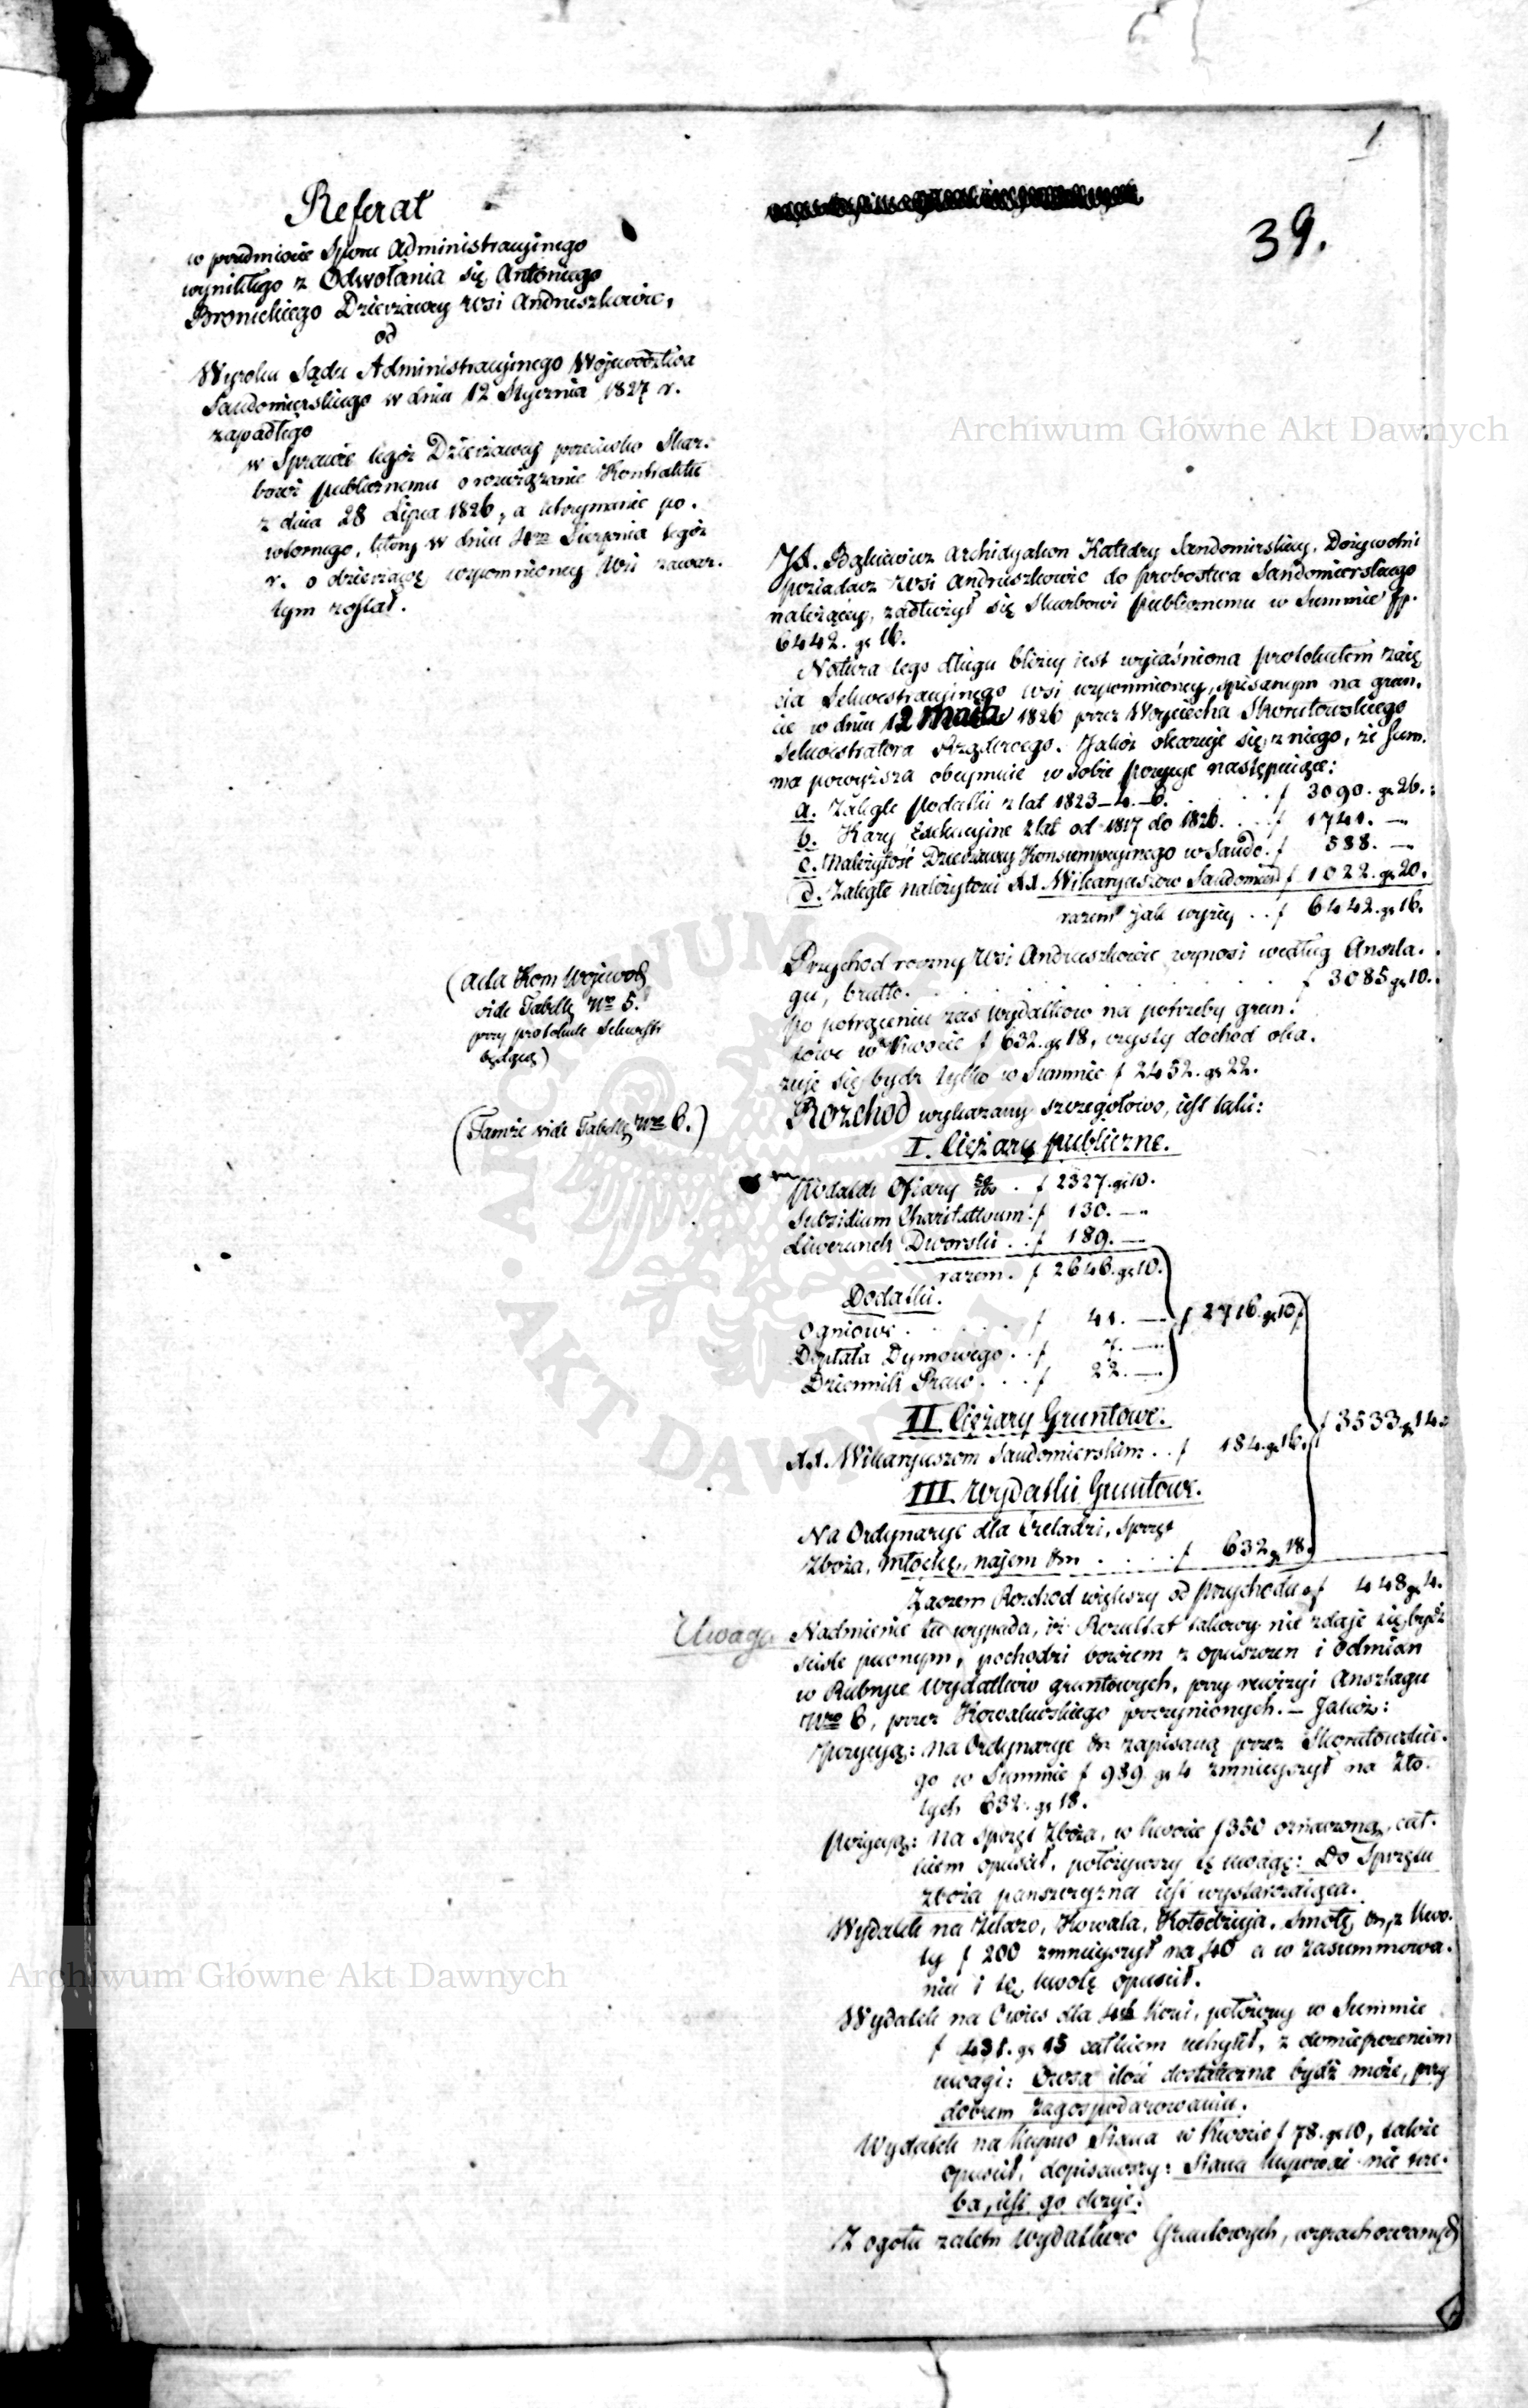 1
39.
Referat
w przedmiocie Sporu Administracyjnego
wynikłego z Odwołania się Antoniego
Bronickiego Dzierżawcy Wsi Andruszkowic,
od
Wyroku Sądu Administracyjnego Województwa
Sandomierskiego w dniu 12 Stycznia 1827 r.
zapadłego
w Sprawie tegoż Dzierżawcy przeciwko Skar-
bowi publicznemu o rozwiązanie Kontraktu
z dnia 28 Lipca 1826, a utrzymanie po-
wtornego, który w dniu 4m Sierpnia tegoż
r. o dzierżawę wspomnioney Wsi zawar-
tym został.
JX. Bąkiewicz Archidyakon Katedry Sandomirskiey, Dożywotni
posiadacz Wsi Andruszkowic do probostwa Sandomierskiego
należącey, zadłużył się Skarbowi publicznemu w Summie fp.
6442. gr 16.
Natura tego długu bliżey iest wyiaśniona protokułem zaię
cia Sekwestracyinego wsi wspomnioney, spisanym na grun-
cie w dniu 12 Maia 1826 przez Woyciecha Skorutowskiego
Sekwestratora Rządowego. Jakoż okazuje się z niego, że Sum-
ma powyższa obeymuie w sobie pozycye następuiące:
a. Zaległe podatki z lat 1823–4.–6. . . . f 3090. gr 26.
b. Kary Exekucyine z lat od 1817 do 1826. . . f 1741. —
c. Należytość Dzierżawy Konsumpcyinego w Sando. f 588. —
d. Zaległe należytości XX. Wikaryuszow Sandomier f 1022. gr 20.
razem jak wyżey . . f 6442. gr 16.
Przychod roczny Wsi Andruszkowic wynosi według Anszla-
gu, brutto. . . . f 3085 gr 10.
(Acta Kom Wojewod
vide Tabellę Nro 5.
przy protokule Sekwestr
będącą)
po potrąceniu zas wydatkow na potrzeby grun-
towe w kwocie f 632. gr 18, czysty dochod oka-
zuje się bydź tylko w Summie f 2452. gr 22.
(Tamże vide Tabellę Nro 6.)
Rozchod wykazany szczegołowo, iest taki:
I. Ciężary publiczne.
Podatek Ofiary 50/100 . f 2327. gr 10.
Subsidium Charitativum. f 130. —
Liwerunek Dworski . . f 189. —
razem. f 2646. gr 10.
Dodatki.
Ogniowe . . . . f 41. — f 2716. gr 10
Dopłata Dymowego . . f 7. —
Dziennik Praw . . . f 22. —
II Ciężary Gruntowe.
XX. Wikaryuszom Sandomierskim . . f 184. gr 16. f 3533. gr 14.
III. Wydatki Gruntowe.
Na Ordynarye dla Czeladzi, sprzęt
zboża, młockę, najem etc . . . . f 632 gr 18.
Zaczem Rozchod większy od Przychodu o f 448 gr 4.
Uwaga Nadmienić tu wypada, iż Rezultat takowy nie zdaje się bydź
ściśle pewnym, pochodzi bowiem z opuszczen i odmian
w Rubryce Wydatkow gruntowych, przy rewizyi Anszlagu
Nro 6, przez Kowalewskiego poczynionych. – Jakoż:
Pozycyą: na Ordynarye etc zapisaną przez Skorutowskie-
go w Summie f 989 gr 4 zmnieyszył na Zło-
tych 632. gr 18.
Pozycyą: na sprzęt Zboża, w kwocie f 350 oznaczoną, cał-
kiem opuścił, położywszy tę uwagę: Do Sprzętu
zboża panszczyzna iest wystarczaiąca.
Wydatek na Żelazo, Kowala, Kołodzieja, smołę, etc, z kwo-
ty f 200 zmnieyszył na 40 a w zasummowa-
niu i tę kwotę opuścił.
Wydatek na Owies dla 4ch Koni, położony w Summie
f 431. gr 15 całkiem uchylił, z domieszczeniem
uwagi: Owsa ilość dostateczna bydź może, przy
dobrem zagospodarowaniu.
Wydatek na kupno Siana w kwocie f 78. gr 10, także
opuścił, dopisawszy: Siana kupować nie trze-
ba, iest go dosyć.
Z ogołu zatem wydatkow Gruntowych, wyrachowanych
Archiwum Główne Akt Dawnych
Archiwum Główne Akt Dawnych
ARCHIWUM GŁÓWNE AKT DAWNYCH